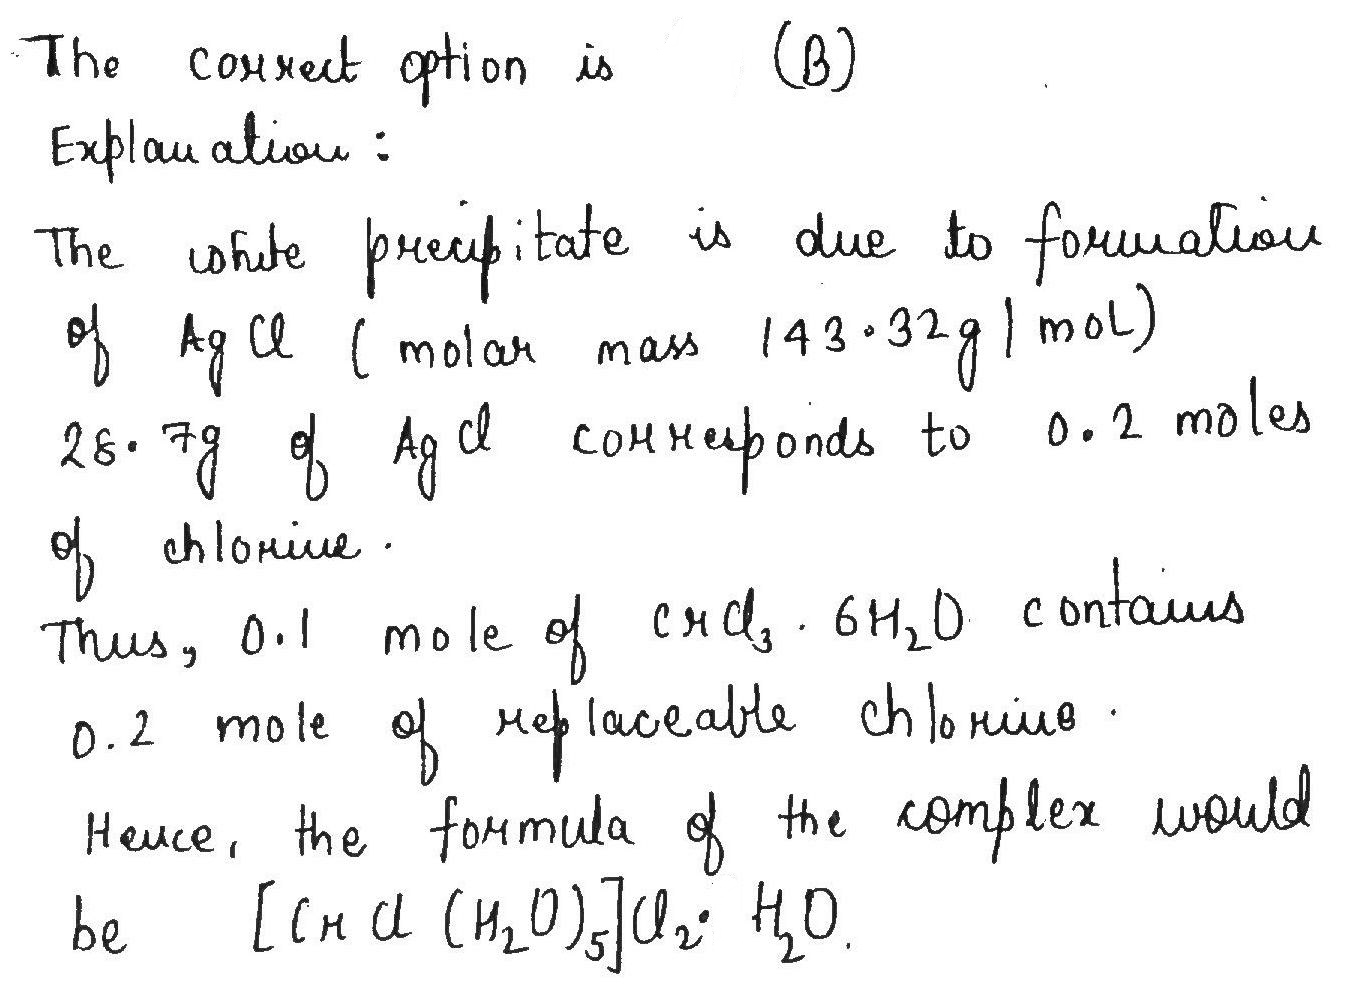 The correct option is (B)
Explanation :
The white precipitate is due to formation
of AgCl ( molar mass 143.32g | mol)
28.7g of AgCl corresponds to 0.2 moles
of chlorine.
Thus, 0.1 mole of CrCl₃ . 6H₂O contains
0.2 mole of replaceable chlorine.
Hence, the formula of the complex would
be [CrCl (H₂O)₅]Cl₂. H₂O.